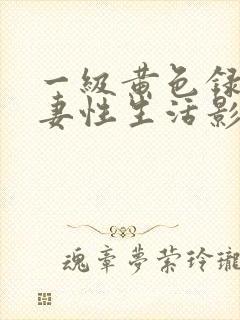 一級黄色録
妻性生活影
魂牽夢縈玲瓏